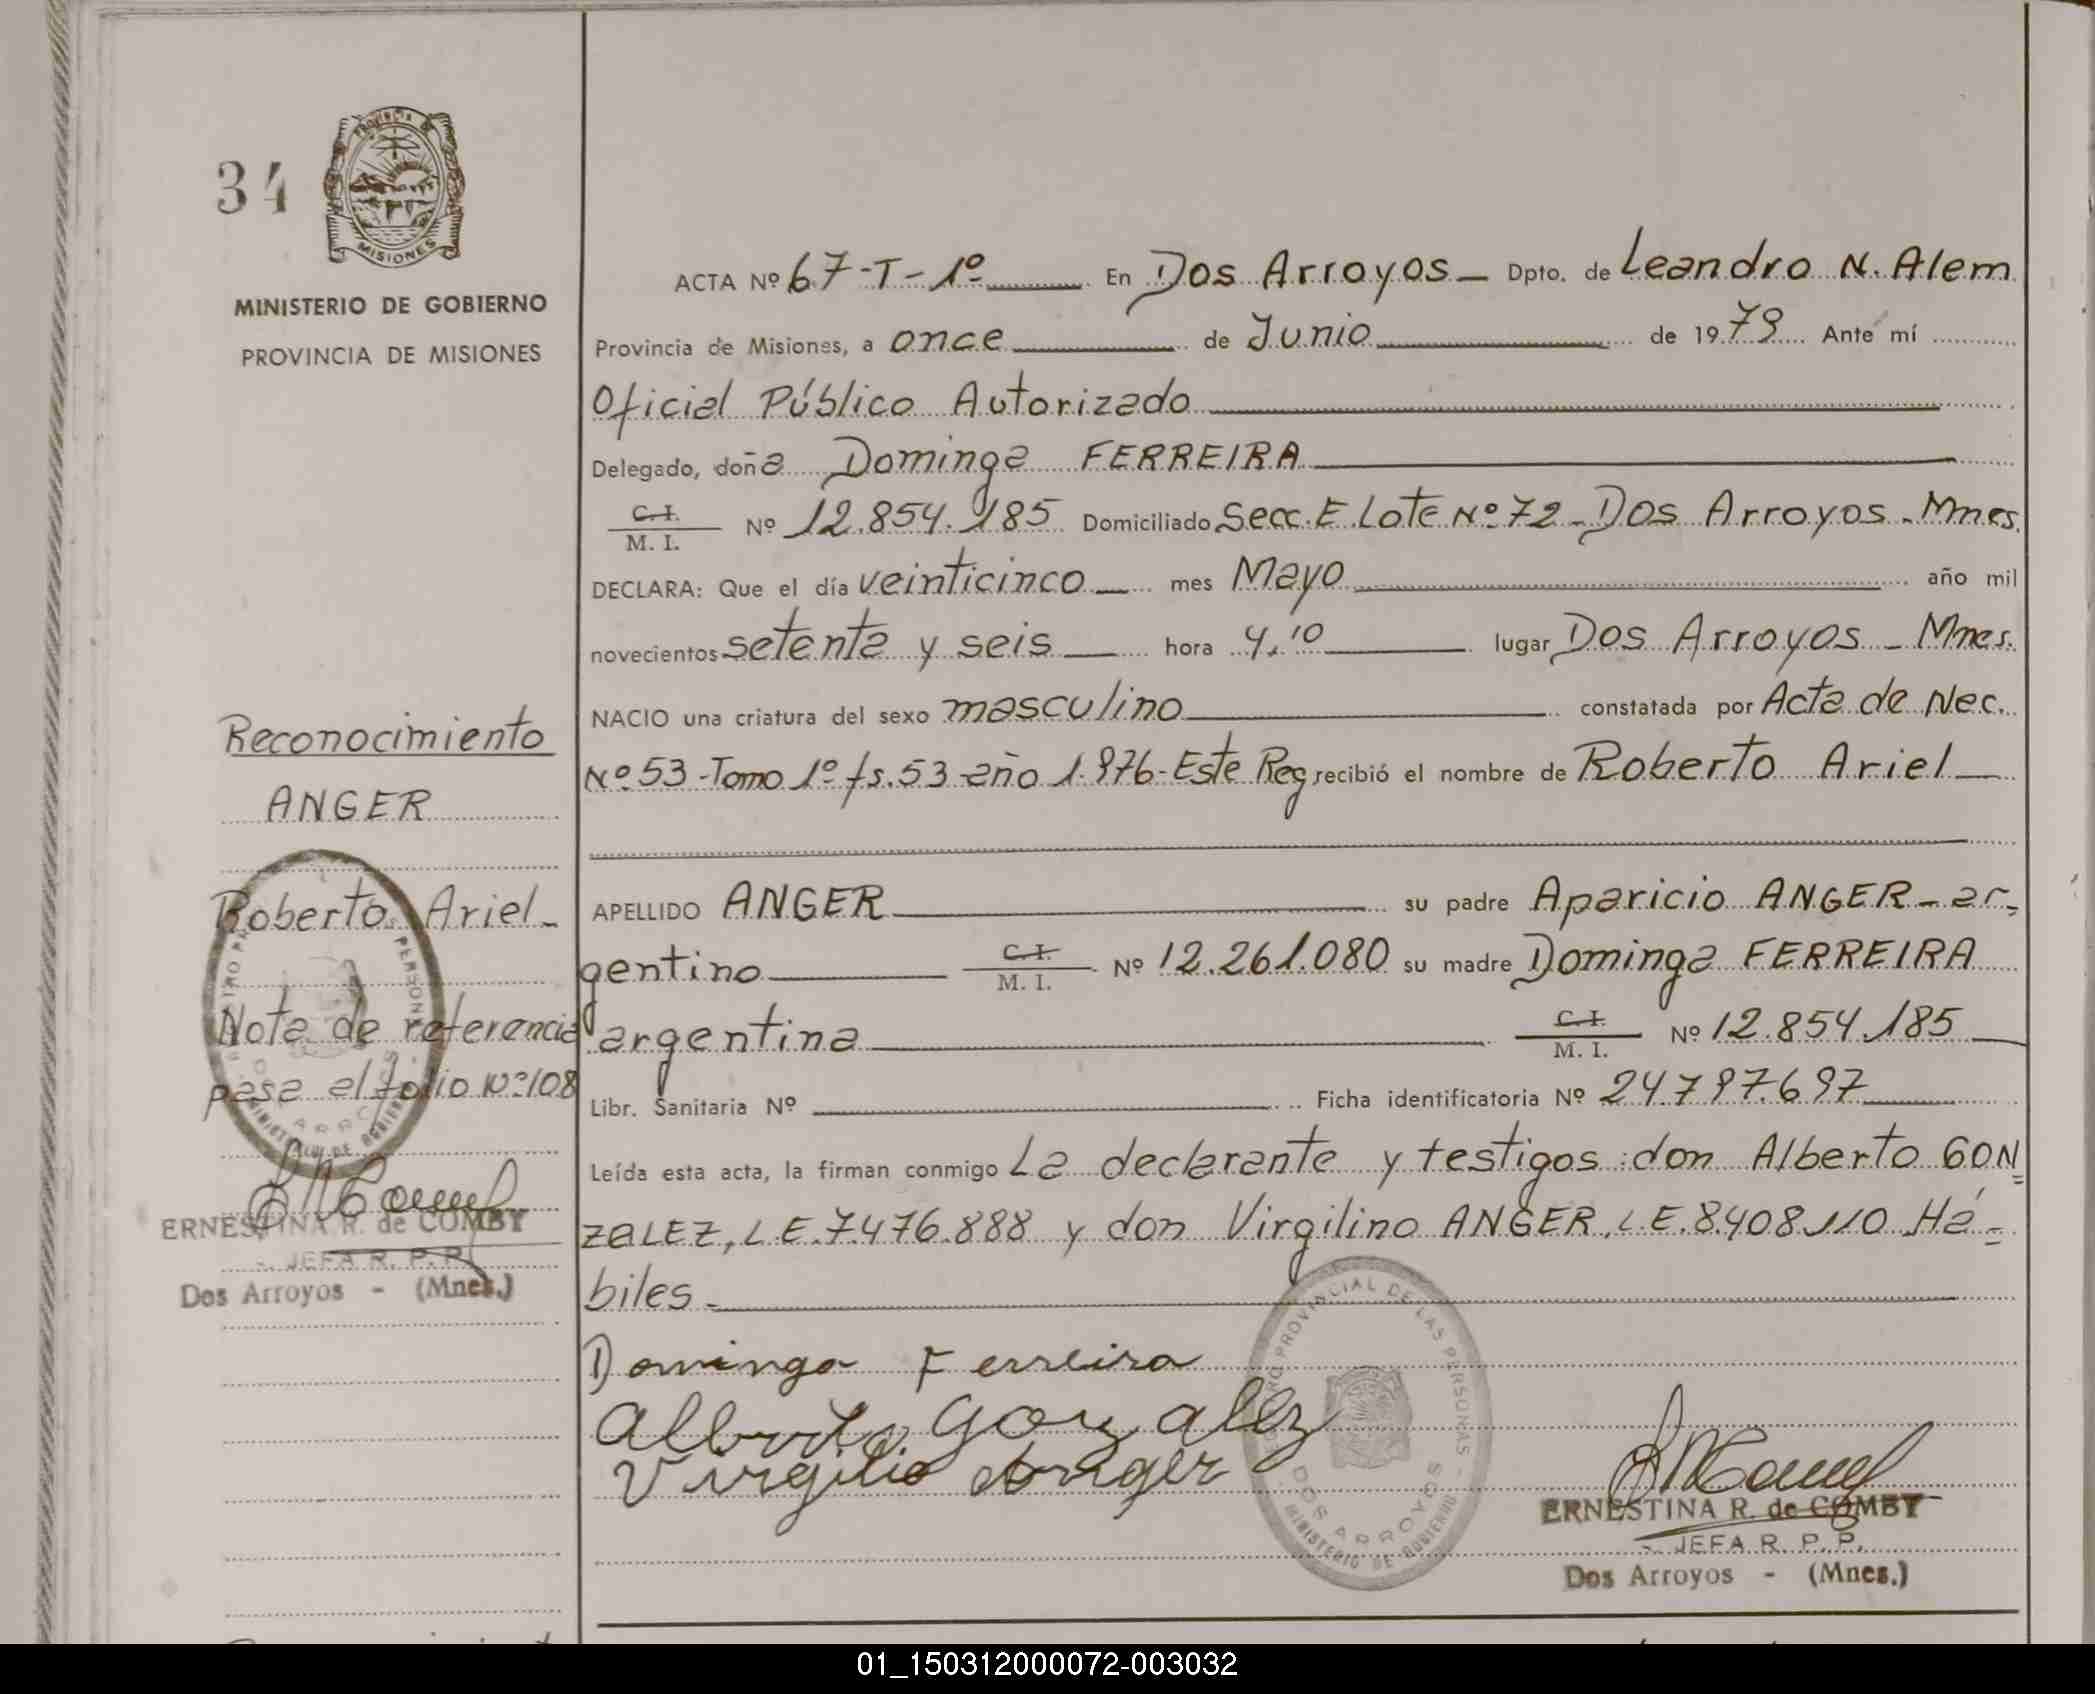 34
PROVINCIA DE
MISIONES
MINISTERIO DE GOBIERNO
PROVINCIA DE MISIONES
Reconocimiento
ANGER
Roberto Ariel_
Nota de referencia
pasa al folio Nº 108
ERNESTINA R. de COMBY
JEFA R. P. P.
Dos Arroyos - (Mnes.)
ACTA Nº 67-T-1º En Dos Arroyos _ Dpto. de Leandro N. Alem
Provincia de Misiones, a once de Junio de 1979 Ante mí
Oficial Público Autorizado
Delegado, doña Dominga FERREIRA
C.I. M. I. Nº 12.854.185 Domiciliado Secc. E Lote Nº 72 - Dos Arroyos - Mnes.
DECLARA: Que el día veinticinco mes Mayo año mil
novecientos setenta y seis hora 4,10 lugar Dos Arroyos - Mnes.
NACIO una criatura del sexo masculino constatada por Acta de Nac.
Nº 53 - Tomo 1º fs. 53 - año 1.976 - Este Reg recibió el nombre de Roberto Ariel
APELLIDO ANGER su padre Aparicio ANGER - ar=
gentino C.I. M. I. Nº 12.261.080 su madre Dominga FERREIRA
argentina C.I. M. I. Nº 12.854.185
Libr. Sanitaria Nº Ficha identificatoria Nº 24.797.697
Leída esta acta, la firman conmigo La declarante y testigos: don Alberto GON=
zaLEZ, L.E. 7.476.888 y don Virgilino ANGER, L.E. 8.408.110 Há=
biles.
Dominga Ferreira
Alberto Gonzalez
Virgilio Anger
REGISTRO PROVINCIAL DE LAS PERSONAS
DOS ARROYOS
MINISTERIO DE GOBIERNO
ERNESTINA R. de COMBY
JEFA R. P. P.
Dos Arroyos - (Mnes.)
01_150312000072-003032